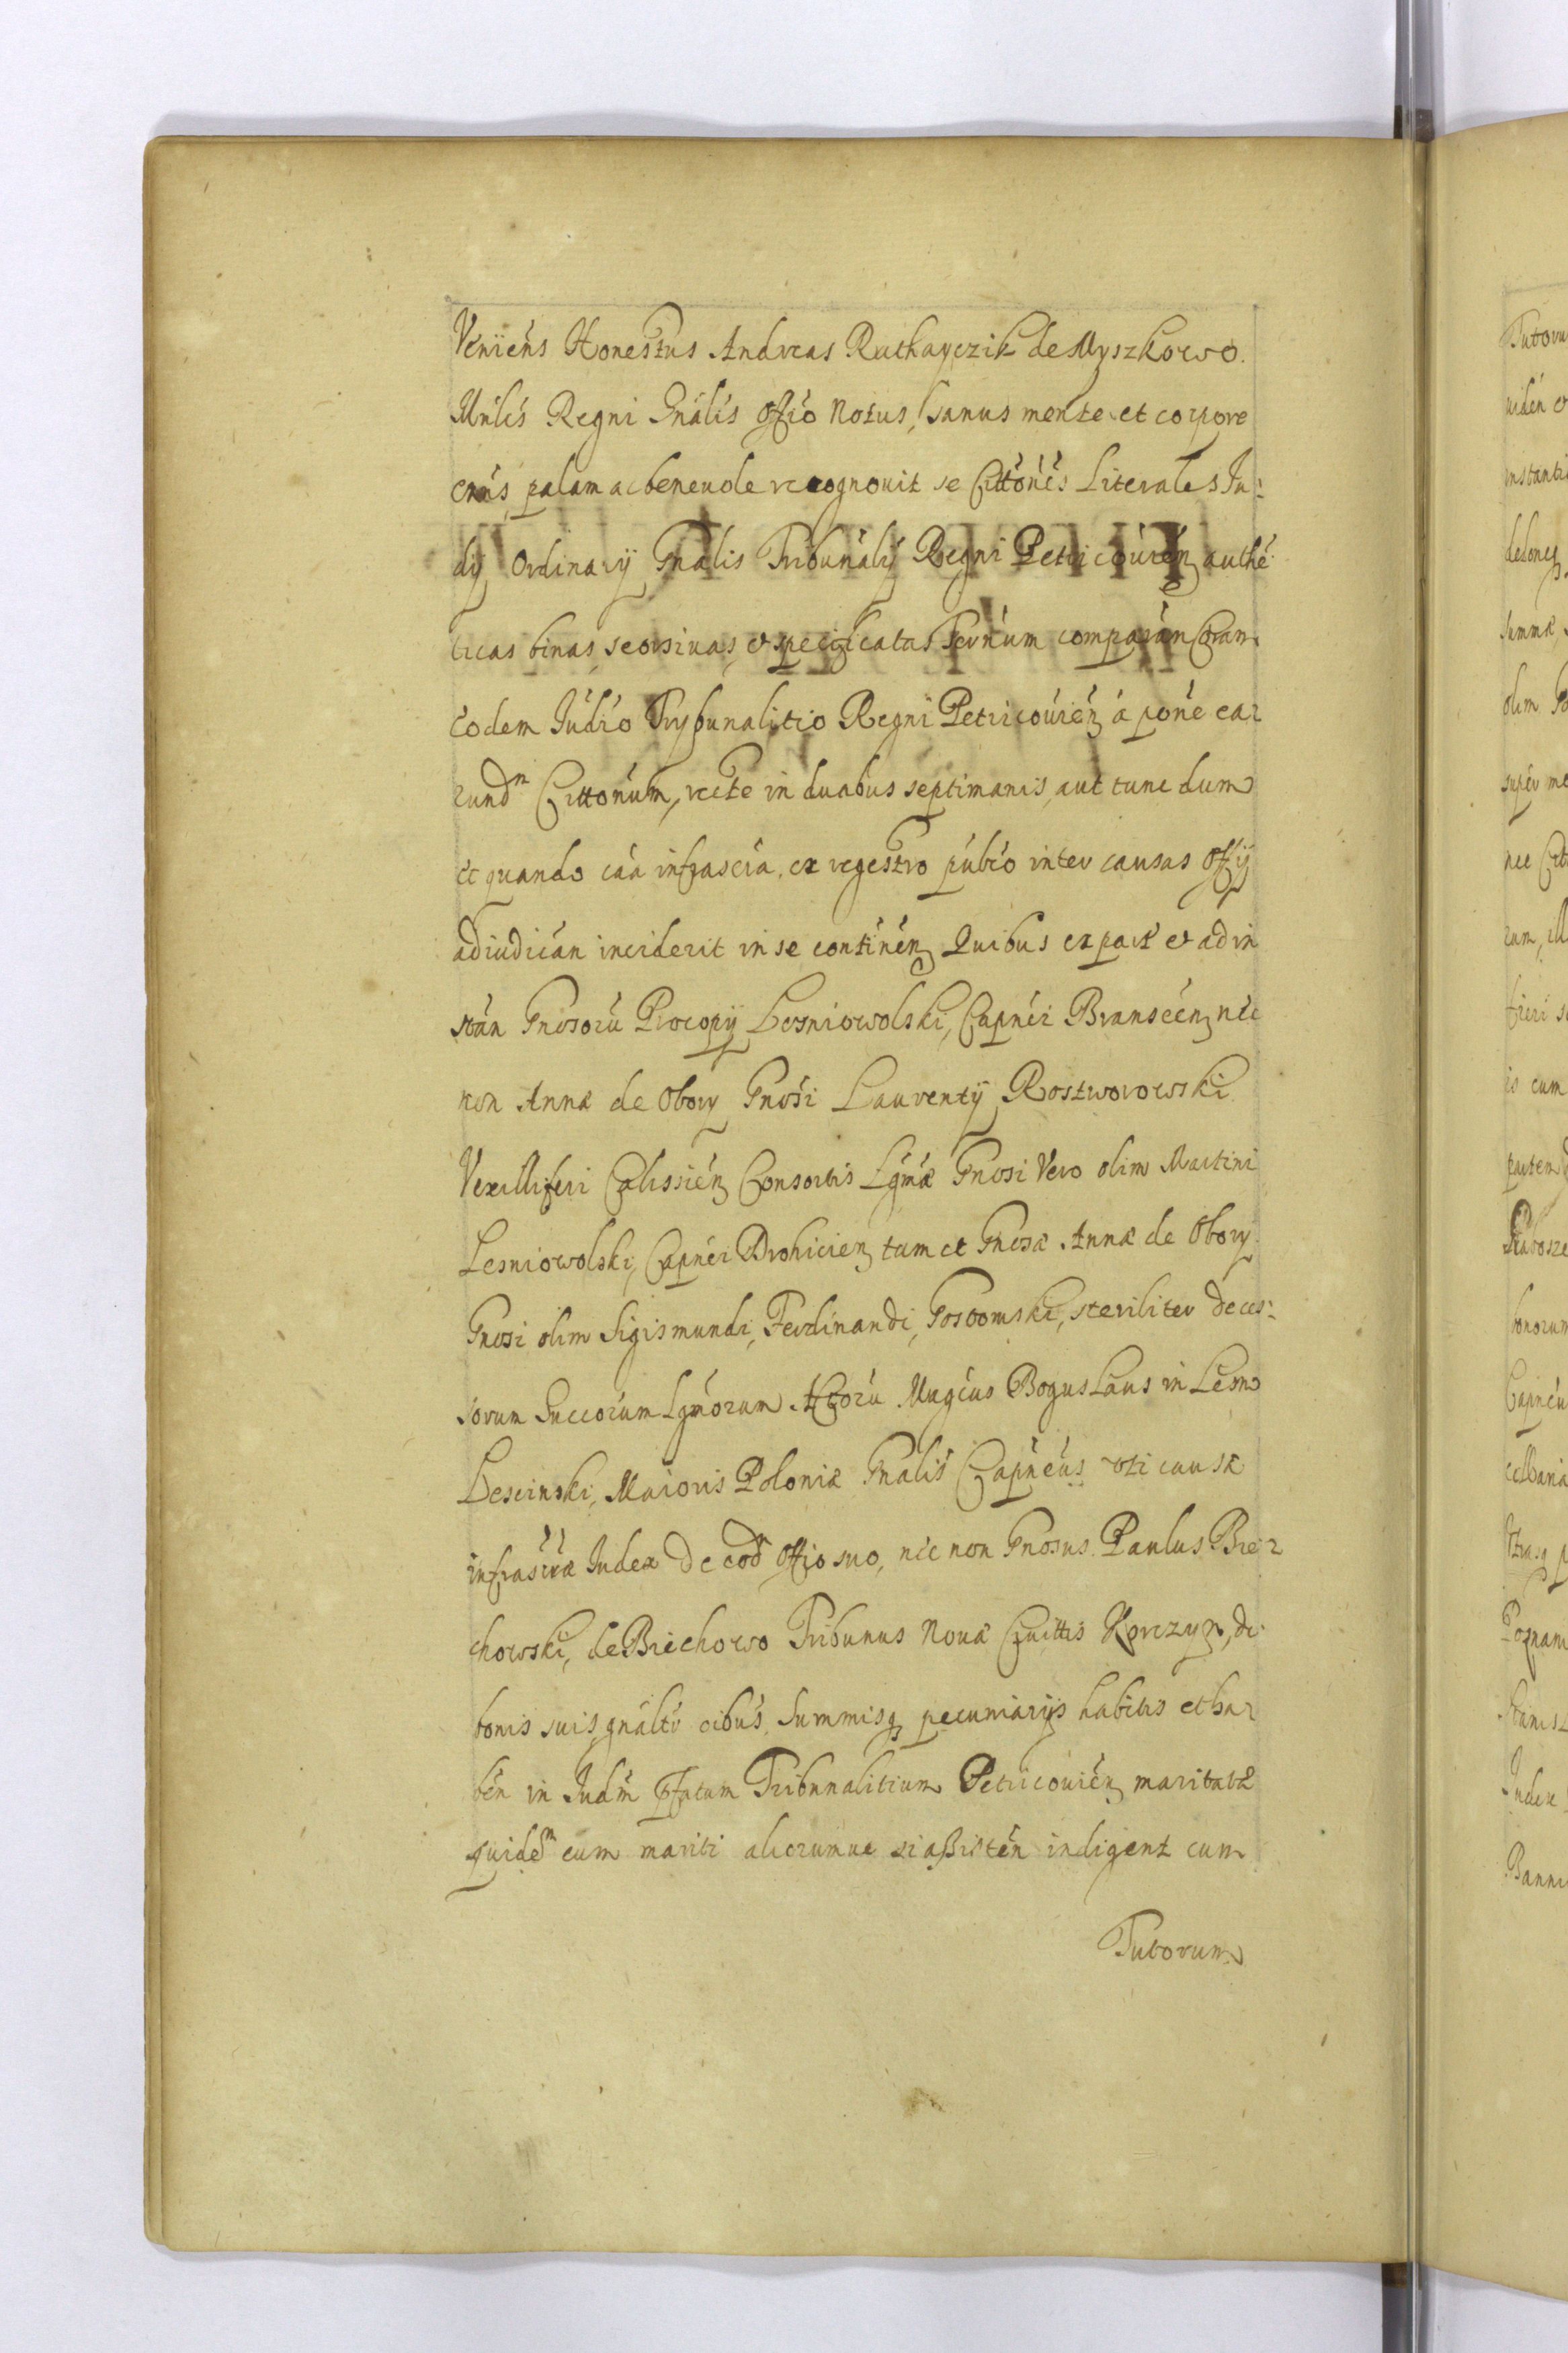 Veniens Honestus Andreas Ruthayczik de Myszkowo
Mnlis Regni Gnalis offo notus, sanus mente et corpore
exns palam ac beneuole recognouit se Cittones Literales Iu:
dij Ordinarij Gnalis Tribunalij Regni Petricouien authe
ticas binas seorsiuas et specificatas Pernum comparan Coram
eodem Iudio Trybunalitio Regni Petricouien a pone ear
rundm Cittonum, recte in duabus septimanis, aut tunc dum
et quando caa infrascra ex regestro publo inter causas Offij
adiudican inciderit in se continen Quibus ex parte et ad in
stan Gnosoru Procopij Lesniowolski, Capnei Branscen nec
non Annæ de Obory Gnosi Laurentij Rostworowski
Vexilliferi Calissien Consortis Lgmæ Gnosi Vero olim Martini
Lesniowolski, Capnei Drohicien tum et Gnosæ Annæ de Obory
Gnosi olim Sigismundi, Ferdinandi, Gostomski, steriliter deces:
sorum Succorum Lgmorum Actoru Magcus Boguslaus in Lesno
Lescinski, Maioris Poloniæ Gnalis Capneus uti causæ
infrascræ Iudex de eod Offio suo, nec non Gnosus Paulus Bie
chowski, de Biechowo Tribunus Nouæ Ciuittis Korczyn, de
bonis suis gnaltr oibus Summisq pecuniarijs habitis et ha
ben in Iudm pfatum Tribunalitium Petricouien maritatæ
quidem cum mariti aliorumue si assisten indigent cum
Tutorum